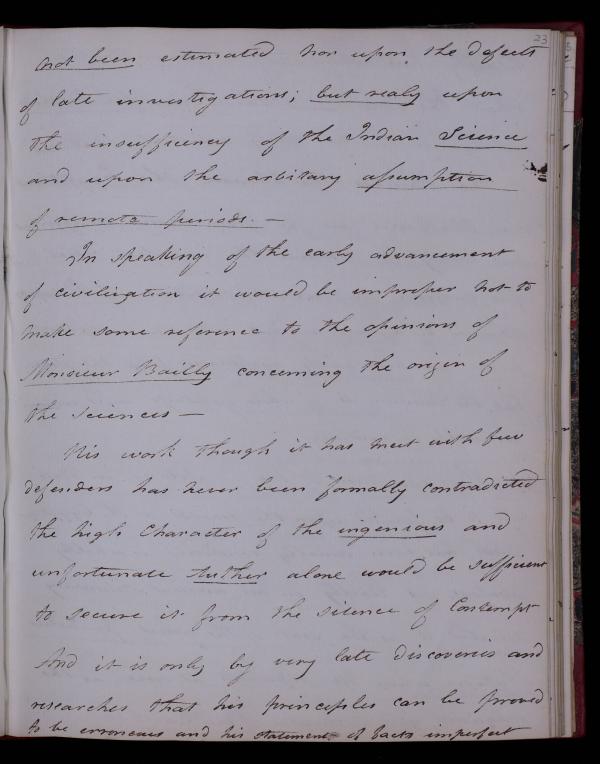 23
not been estimated nor upon the defects
of late investigations; but realy upon
the insufficiency of the Indian Science
and upon the arbitrary assumption
of remote periods. —
In speaking of the early advancement
of civilization it would be improper not to
make some reference to the opinions of
Monsieur Bailly concerning the origin of
the sciences —
His work though it has meet with few
defenders has never been formally contradicted
the high Character of the ingenious and
unfortunate Author alone would be sufficient
to secure it from the silence of Contempt
And it is only by very late discoveries and
researches that his principles can be proved
to be erroneous and his statements of facts imperfect